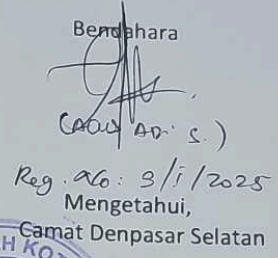 Bendahara
AD. S.)
Reg. No: 3/1/2025
Mengetahui,
Camat Denpasar Selatan
H KO